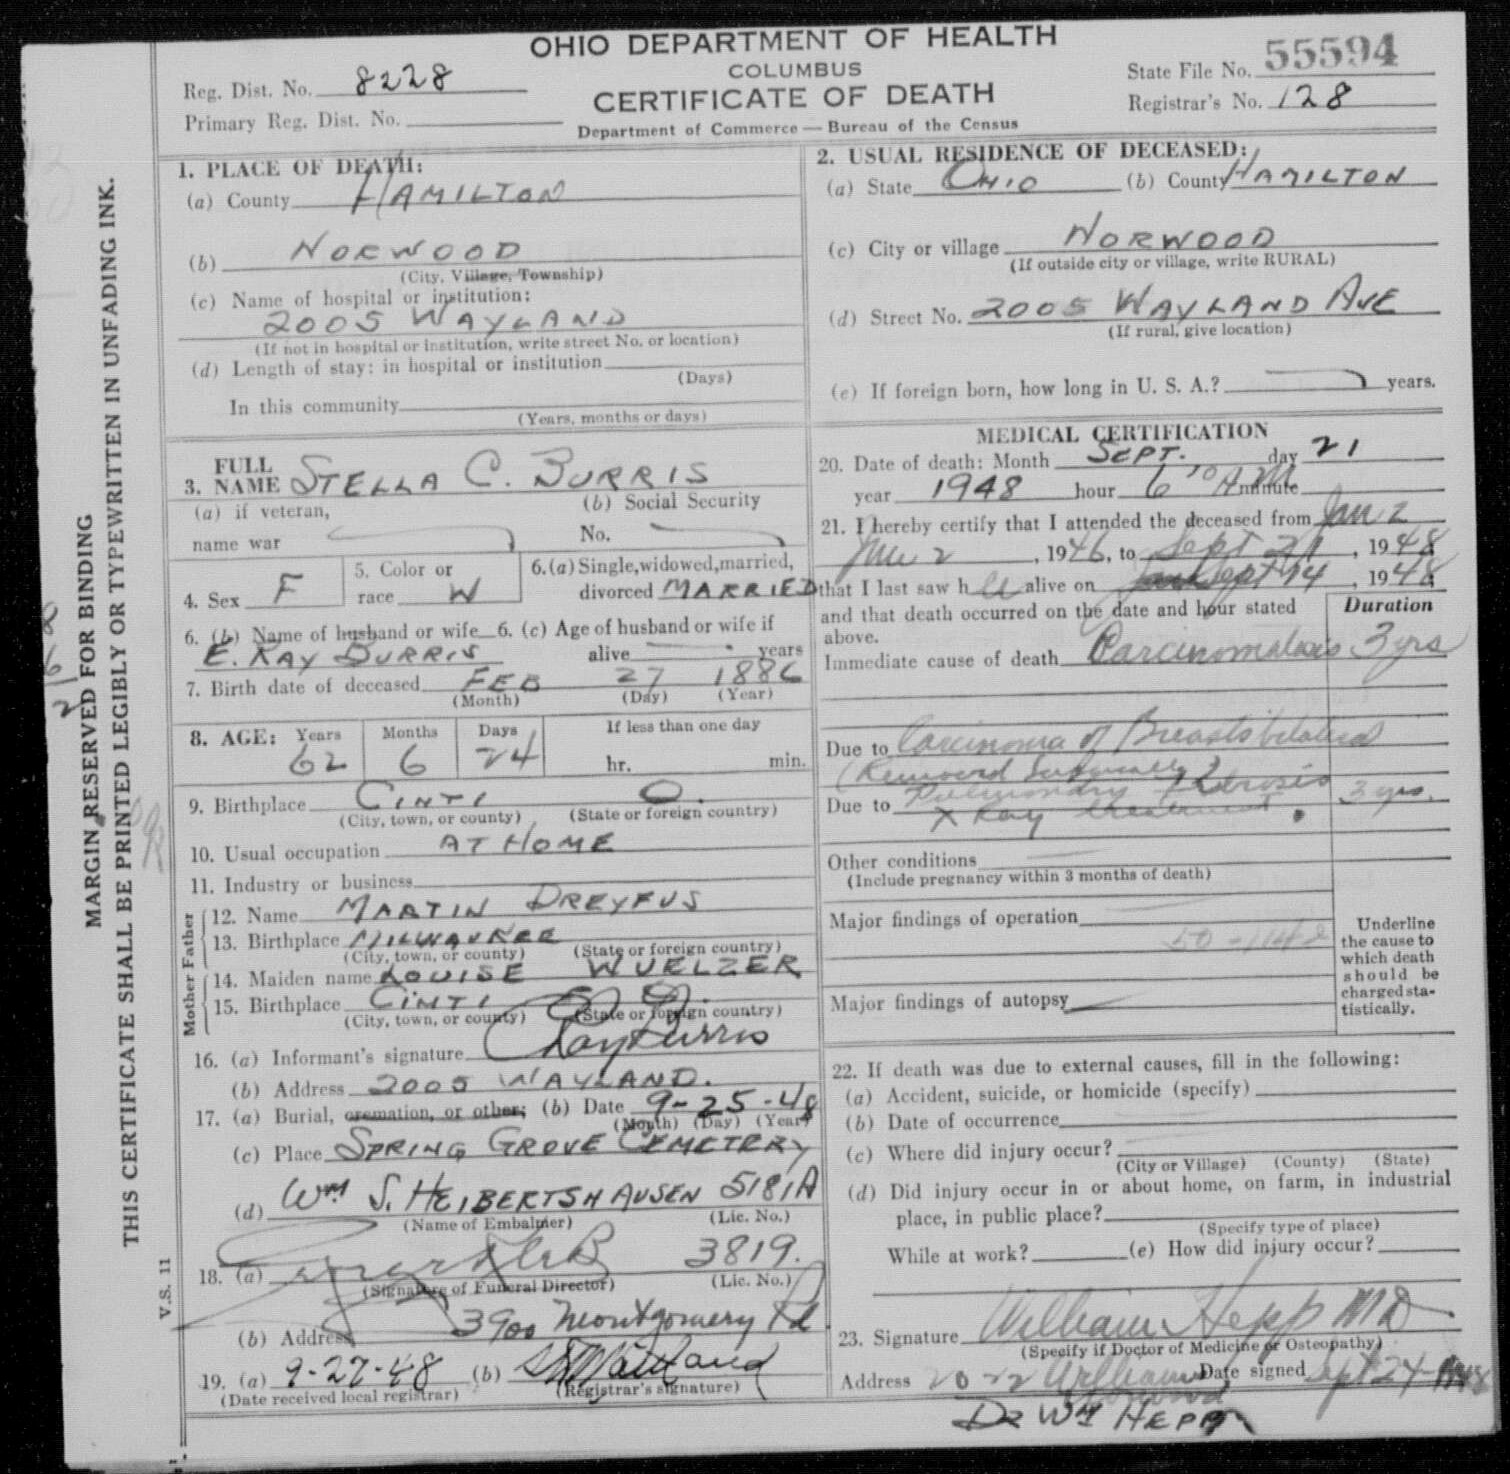 OHIO DEPARTMENT OF HEALTH
COLUMBUS
CERTIFICATE OF DEATH
Department of Commerce — Bureau of the Census
Reg. Dist. No. 8228
Primary Reg. Dist. No.
State File No. 55594
Registrar's No. 128
MARGIN RESERVED FOR BINDING
THIS CERTIFICATE SHALL BE PRINTED LEGIBLY OR TYPEWRITTEN IN UNFADING INK.
V.S. 11
1. PLACE OF DEATH:
(a) County HAMILTON
(b) NORWOOD
(City, Village, Township)
(c) Name of hospital or institution:
2005 WAYLAND
(If not in hospital or institution, write street No. or location)
(d) Length of stay: in hospital or institution
(Days)
In this community
(Years, months or days)
2. USUAL RESIDENCE OF DECEASED:
(a) State OHIO (b) County HAMILTON
(c) City or village NORWOOD
(If outside city or village, write RURAL)
(d) Street No. 2005 WAYLAND AVE
(If rural, give location)
(e) If foreign born, how long in U. S. A.? years.
3. FULL NAME STELLA C. BURRIS
(a) if veteran,
name war
(b) Social Security
No.
4. Sex F
5. Color or
race W
6.(a) Single, widowed, married,
divorced MARRIED
6. (b) Name of husband or wife
E. RAY BURRIS
6. (c) Age of husband or wife if
alive years
7. Birth date of deceased FEB 27 1886
(Month) (Day) (Year)
8. AGE: Years Months Days If less than one day
62 6 24 hr. min.
9. Birthplace CINTI O.
(City, town, or county) (State or foreign country)
10. Usual occupation AT HOME
11. Industry or business
Father
12. Name MARTIN DREYFUS
13. Birthplace MILWAUKEE
(City, town, or county) (State or foreign country)
Mother
14. Maiden name LOUISE WUELZER
15. Birthplace CINTI O.
(City, town, or county) (State or foreign country)
16. (a) Informant's signature Ray Burris
(b) Address 2005 WAYLAND.
17. (a) Burial, cremation, or other; (b) Date 9-25-48
(Month) (Day) (Year)
(c) Place SPRING GROVE CEMETERY
(d) WM J. HEIBERTSHAUSEN 5181A
(Name of Embalmer) (Lic. No.)
18. (a) 3819.
(Signature of Funeral Director) (Lic. No.)
(b) Address 3900 Montgomery Rd.
19. (a) 9-27-48 (b)
(Date received local registrar) (Registrar's signature)
MEDICAL CERTIFICATION
20. Date of death: Month SEPT. day 21
year 1948 hour 6 10 AM minute
21. I hereby certify that I attended the deceased from Jan 2
, 1946, to Sept 21, 1948
that I last saw her alive on Sept 14, 1948
and that death occurred on the date and hour stated
above.
Duration
Immediate cause of death Carcinomatosis 3 yrs
Due to Carcinoma of Breasts bilateral
(Removed Surgically)
Due to Pulmonary Fibrosis 3 yrs.
X Ray treatment.
Other conditions
(Include pregnancy within 3 months of death)
Major findings of operation
Major findings of autopsy
Underline
the cause to
which death
should be
charged sta-
tistically.
22. If death was due to external causes, fill in the following:
(a) Accident, suicide, or homicide (specify)
(b) Date of occurrence
(c) Where did injury occur?
(City or Village) (County) (State)
(d) Did injury occur in or about home, on farm, in industrial
place, in public place?
(Specify type of place)
While at work? (e) How did injury occur?
23. Signature William Hepp MD
(Specify if Doctor of Medicine or Osteopathy)
Address Williams Date signed Sept 24-1948
Norwood
DR WM HEPP